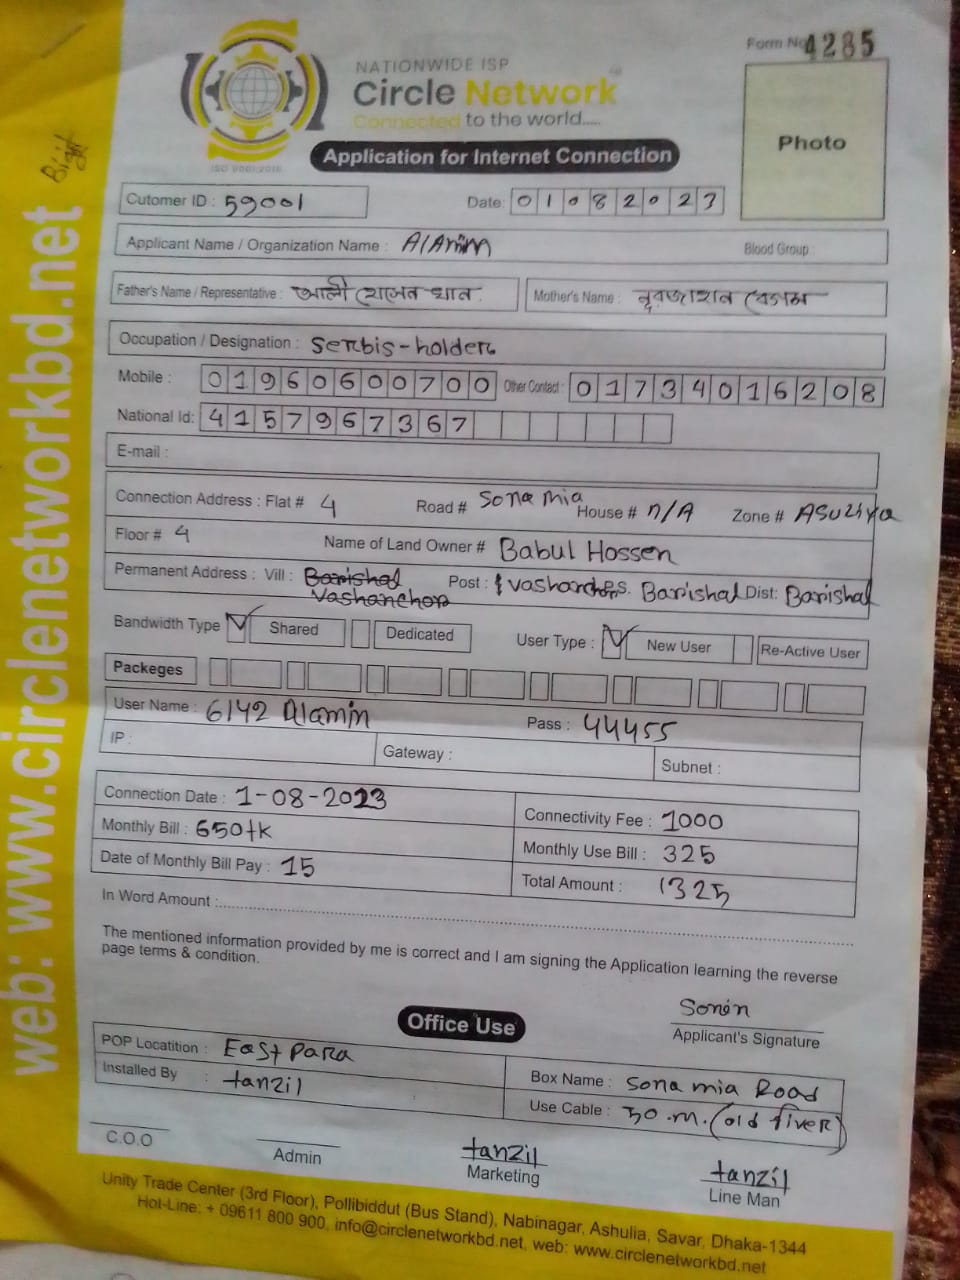 Form No 4285
NATIONWIDE ISP
Circle Network
Connected to the world.....
ISO 9001:2015
Application for Internet Connection
Photo
Cutomer ID : 59001 Date: 01082023
Applicant Name / Organization Name : AlAmin Blood Group :
Father's Name / Representative : আলী হোসেন খান Mother's Name : নুরজাহান বেগম
Occupation / Designation : Serbis-holder
Mobile : 01960600700 Other Contact : 01734016208
National Id: 4157967367
E-mail :
Connection Address : Flat # 4 Road # Sona mia House # n/A Zone # ASuliya
Floor # 4 Name of Land Owner # Babul Hossen
Permanent Address : Vill : Barishal Vashanchor Post : vashanchor P.S. Barishal Dist: Barishal
Bandwidth Type Shared Dedicated User Type : New User Re-Active User
Packeges
User Name : 6142 Alamin Pass : 44455
IP : Gateway : Subnet :
Connection Date : 1-08-2023 Connectivity Fee : 1000
Monthly Bill : 650tk Monthly Use Bill : 325
Date of Monthly Bill Pay : 15 Total Amount : 1325
In Word Amount :
The mentioned information provided by me is correct and I am signing the Application learning the reverse
page terms & condition.
Applicant's Signature
Office Use
POP Locatition : East para Box Name : Sona mia Road
Installed By : tanzil Use Cable : 50.m. (old fiver)
C.O.O Admin
tanzil
Marketing
tanzil
Line Man
Unity Trade Center (3rd Floor), Pollibiddut (Bus Stand), Nabinagar, Ashulia, Savar, Dhaka-1344
Hot-Line: + 09611 800 900, info@circlenetworkbd.net, web: www.circlenetworkbd.net
web: www.circlenetworkbd.net